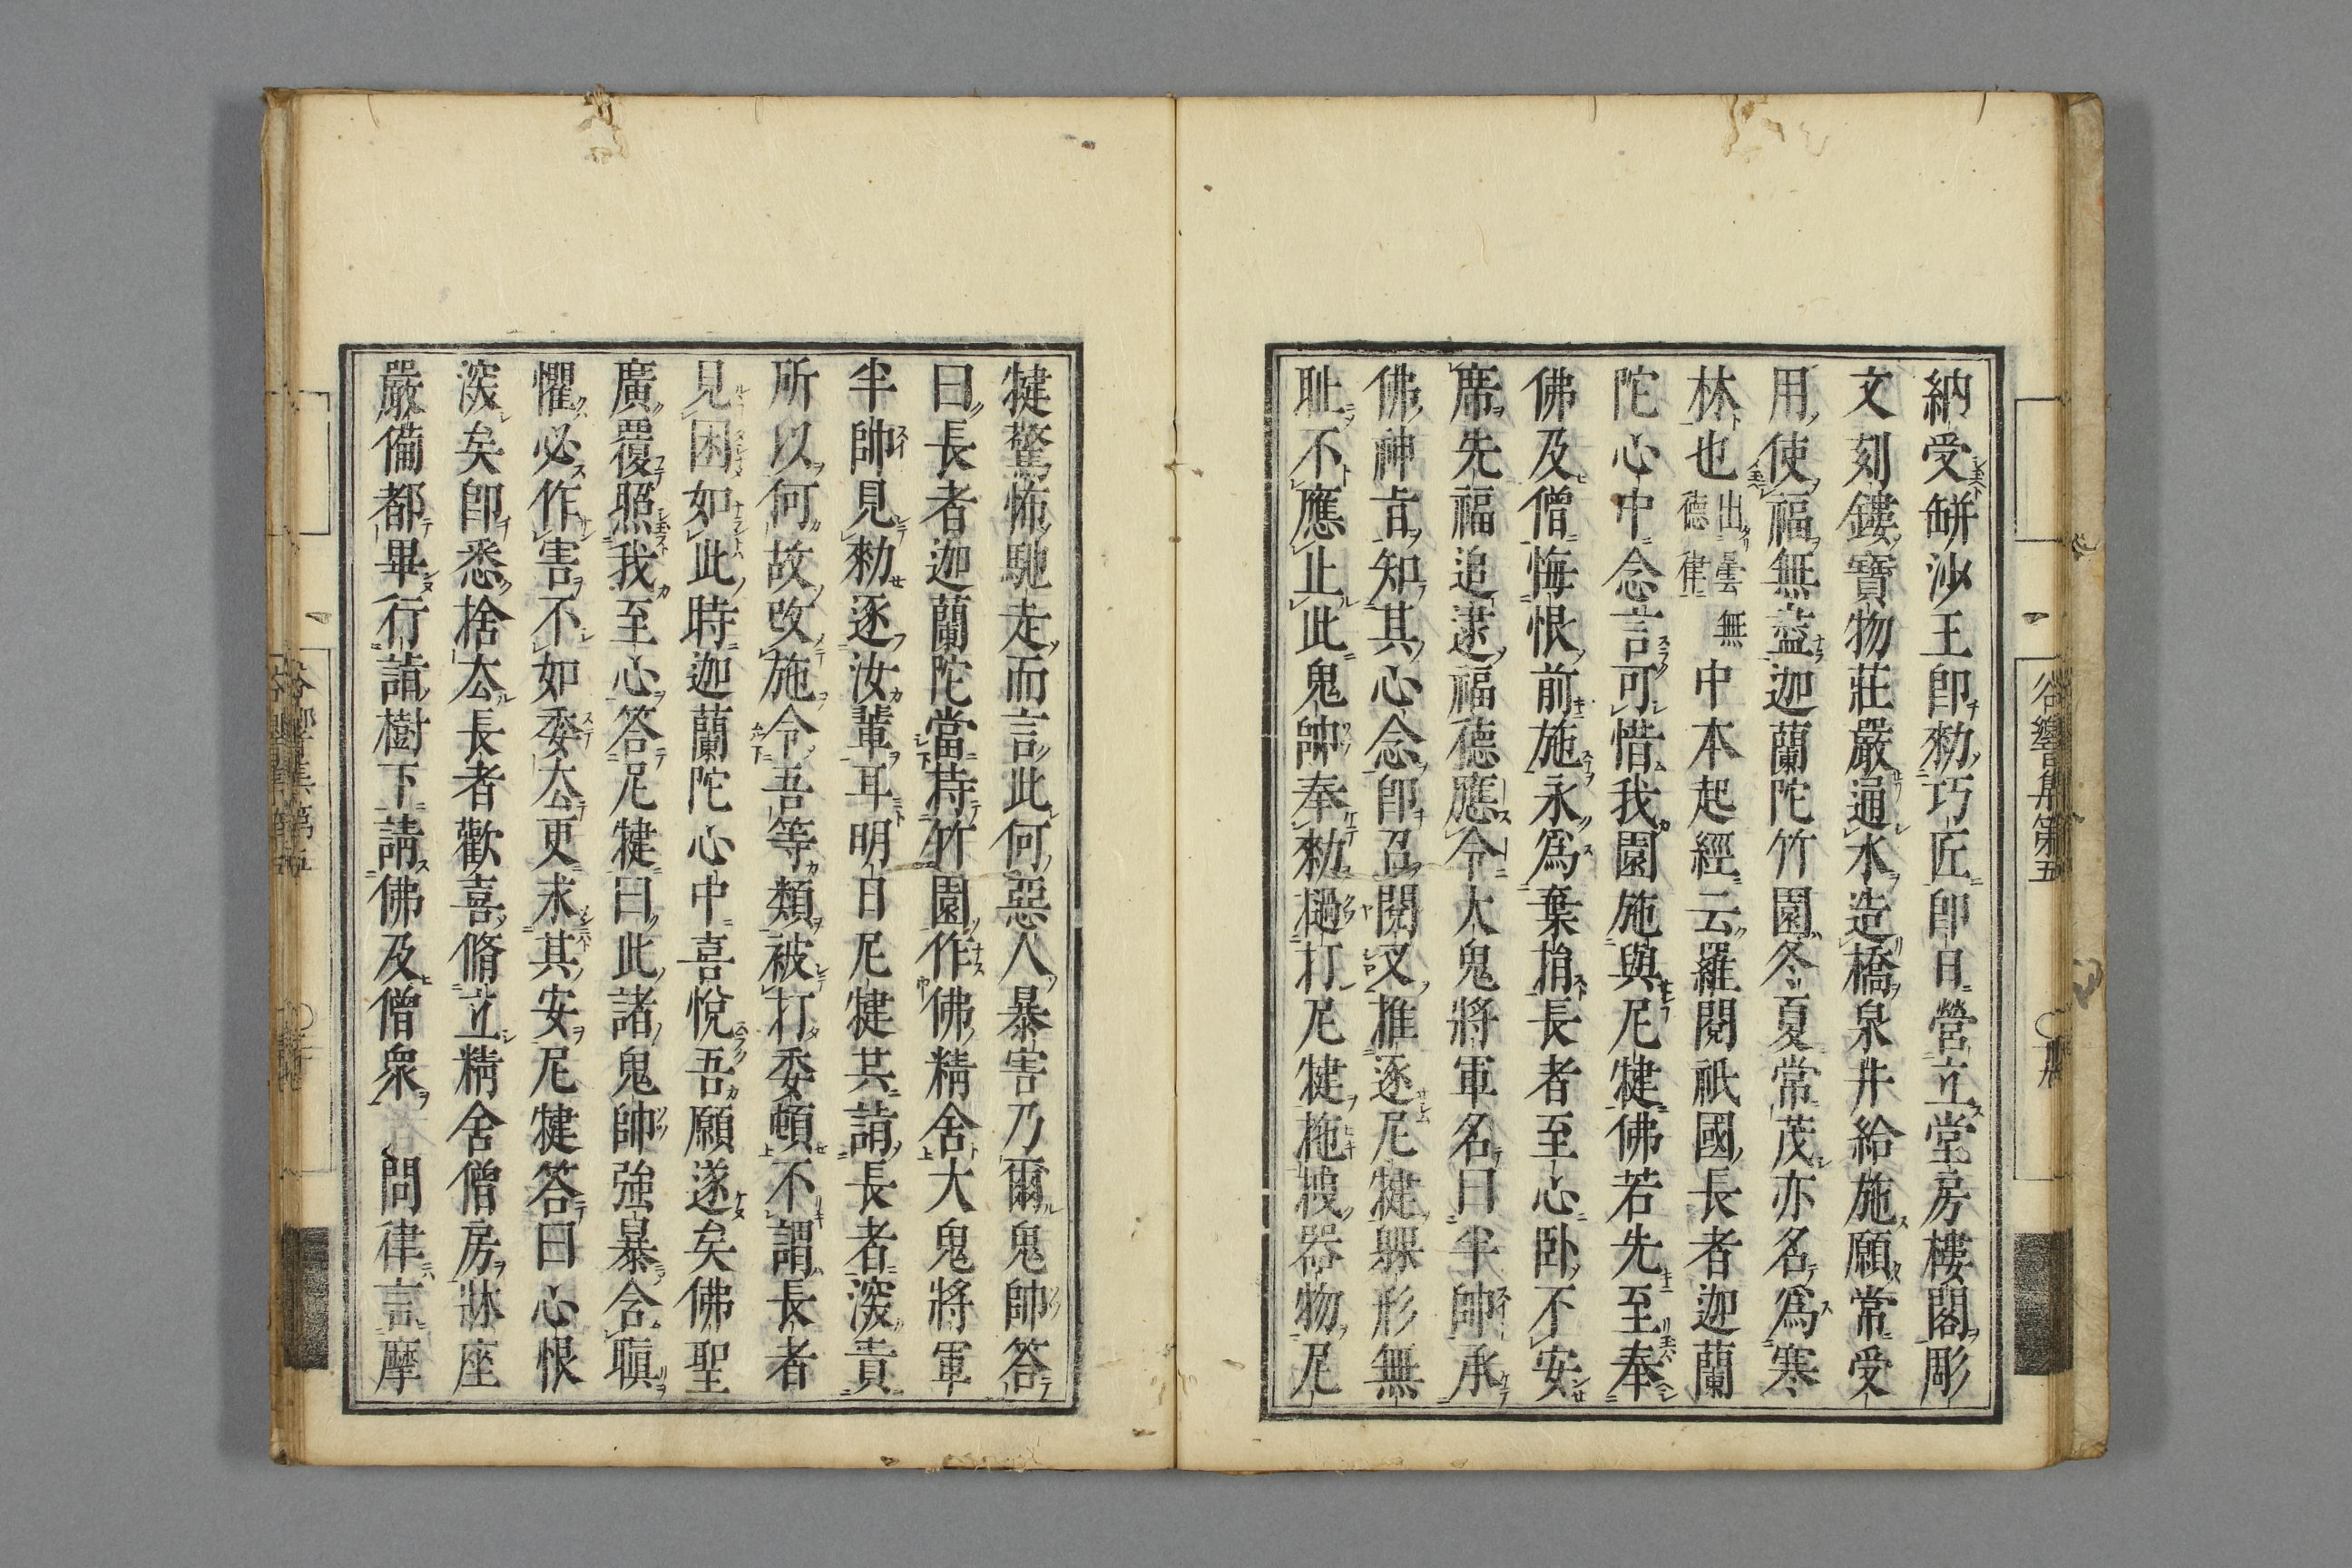 納受缾沙王卽勑巧匠卽日營立堂房樓閣彫
文刻鏤寶物莊嚴通水造橋泉井給施願常受
用使福無盡迦蘭陀竹園冬夏常茂亦名爲寒
林也出曇無德律中本起經云羅閱祇國長者迦蘭
陀心中念言可惜我園施與尼犍佛若先至奉
佛及僧悔恨前施永爲棄捐長者至心臥不安
席先福追逮福德應令大鬼將軍名曰半師承
佛神旨知其心念卽召閱叉推逐尼犍躶形無
耻不應止此鬼帥奉勑撾打尼犍拖拽器物尼
犍驚怖馳走而言此何惡人暴害乃爾鬼帥答
曰長者迦蘭陀當持竹園作佛精舍大鬼將軍
半帥見勑逐汝輩耳明日尼犍共詣長者深責
所以何故改施令吾等類被打委頓不謂長者
見困如此時迦蘭陀心中喜悅吾願遂矣佛聖
廣覆照我至心答尼犍曰此諸鬼帥強暴含瞋
懼必作害不如委厺更求其安尼犍答曰心恨
深矣卽悉捨厺長者歡喜脩立精舍僧房牀座
嚴備都畢行詣樹下請佛及僧衆 問律言摩
谷響集第五
谷響集第五